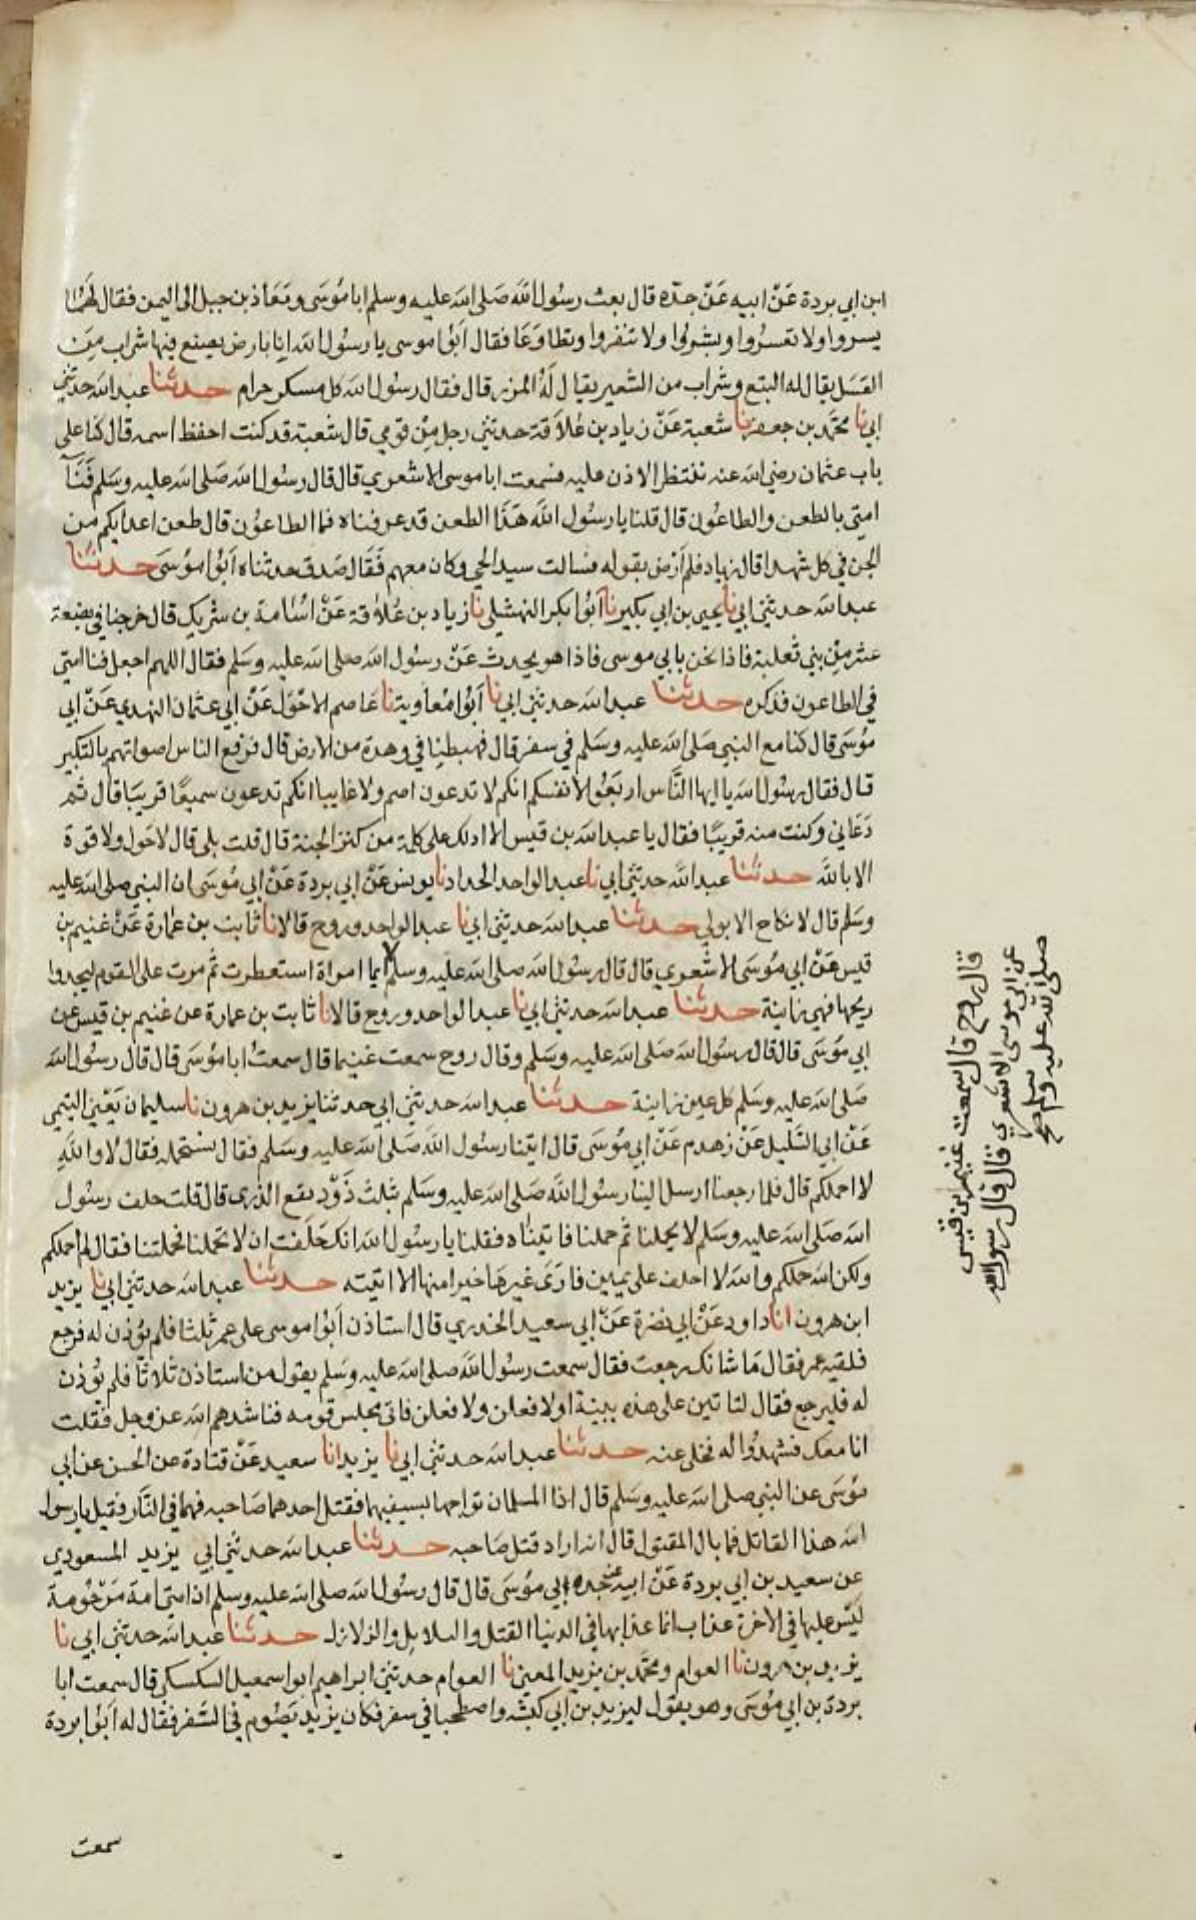 ابن ابي بردة عَنْ ابيه عَنْ جدّه قال بعث رسُول الله صَلى الله عليه وسلم ابا مُوسَى ومَعَاذ بن جبل الى اليمن فقال لهُمَا
يسروا ولا تعسرُوا وبشرُوا ولا تنفروا وتطاوَعَا فقال اَبُوا موسى يا رسُول الله انا بارض يصنع فيها شراب مِنَ
العَسَل يقال له البتع وشراب من الشعير يقال لهُ المزر قال فقال رسُول الله كل مسكر حرام حدثنا عبد الله حدثني
ابي نا محمَّد بن جعفر نا شعبة عَنْ زياد بن علاقة حدثني رجل مِنْ قومي قال شعبة قد كنت احفظ اسمه قال كنا على
باب عثمان رضي الله عنه ننتظر الاذن عليه فسمعت ابا موسى الاشعري قال قال رسُول الله صَلى الله عليه وسَلم فَنَآ
امتى بالطعن والطاعُون قال قلنا يا رسُول الله هَذَا الطعن قد عرفناه فما الطاعُون قال طعن اعدايكم من
الجن في كل شهدا قال زياد فلم اَرْض بقوله فسالت سيد الحي وكان معهم فَقَال صَدق حدثناه اَبُوا مُوسَى حدثنا
عبد الله حدثني ابي نا يحيى بن ابي بكير نا اَبُوا بكر النهشلي نا زياد بن علاقة عَنْ اسُامة بن شريك قال خرجنا في بضعة
عشر مِنْ بني ثعلبة فاذا نحن بابي موسى فاذا هو يحدث عَنْ رسُول الله صَلى الله عليه وسَلم فقال اللهم اجعل فنا امتى
في الطاعون فذكره حدثنا عبد الله حدثني ابي نا اَبُوا مُعاوية نا عَاصم الاحْوَل عَنْ ابي عثمان النهدي عَنْ ابي
مُوسَى قال كنا مع النبي صَلى الله عليه وسَلم في سفر قال فهبطنا في وهدة من الارض قال فرفع الناس اصواتهم بالتكبير
قال فقال رسُول الله يا ايها النَّاس اربَعُوا لانفسكم انكم لا تدعون اصم ولا غايبا انكم تدعون سميعًا قريبًا قال ثم
دَعَاني وكنت منه قريبًا فقال يا عبد الله بن قيس الا ادلك على كلمة من كنز الجنة قال قلت بلى قال لا حَول ولا قوة
الا بالله حدثنا عبد الله حدثني ابي نا عبد الواحد الحداد نا يونس عَنْ ابي بردة عَنْ ابي مُوسَى ان النبي صَلى الله عليه
وسَلم قال لا نكاح الا بولي حدثنا عبد الله حدثني ابي نا عبد الواحد وروح قالا نا ثابت بن عمارة عَنْ غنيم بن
قيس عَنْ ابي مُوسَى الاشعري قال قال رسُول الله صلى الله عليه وسلم ايما امراة استعطرت ثم مرت على القوم ليجدوا
ريحها فهي زانية حدثنا عبد الله حدثني ابي نا عبد الواحد وروح قالا نا ثابت بن عمارة عن غنيم بن قيس عن
ابي مُوسَى قال قال رسُول الله صَلى الله عليه وسَلم وقال روح سمعت غنيما قال سمعتُ ابا مُوسَى قال قال رسُول الله
صَلى الله عليه وسَلم كل عين زانية حدثنا عبد الله حدثني ابي حدثنا يزيد بن هرون نا سليمان يَعْني التيمي
عَنْ ابي السَّليل عَنْ زهدم عَنْ ابي مُوسَى قال اتينا رسُول الله صَلى الله عليه وسَلم فقال نستحمله فقال لا والله
لا احملكم قال فلما رجعنا ارسل الينا رسُول الله صَلى الله عليه وسَلم بثلث ذَوْد بقع الذرى قال قلت حلف رسُول
الله صَلى الله عليه وسَلم لا يحملنا ثم حملنا فاتيناه فقلنا يا رسُول الله انك حَلَفت ان لا تحملنا فحملتنا فقال لم احملكم
ولكن الله حملكم والله لا احلف على يمين فارَى غيرهَا خيرا منها الا اتيته حدثنا عبد الله حدثني ابي نا يزيد
ابن هرون انا داود عَنْ ابي نضرة عَنْ ابي سعيد الخدري قال استاذن اَبُوا موسى على عمر ثلثا فلم يؤذن له فرجع
فلقيه عمر فقال مَا شانك رجعت فقال سمعت رسُول الله صَلى الله عليه وسَلم يقول من استاذن ثلاثا فلم يؤذن
له فليرجع فقال لتاتين على هذه ببينة او لافعلن ولافعلن فاتى مجلس قومه فناشدهم الله عز وجل فقلت
انا معك فشهدُوا له فخلى عنه حدثنا عبد الله حدثني ابي نا يزيد انا سعيد عَنْ قتادة عن الحسن عن ابي
مُوسَى عن النبي صلى الله عليه وسَلم قال اذا المسلمان تواجها بسيفيهما فقتل احدهما صَاحبه فهما في النَّار فقيل يا رسول
الله هذا القاتل فما بال المقتول قال انه اراد قتل صَاحبه حدثنا عبد الله حدثني ابي يزيد المسعودي
عن سعيد بن ابي بردة عَنْ ابيه عن جده ابي مُوسَى قال قال رسُول الله صَلى الله عليه وسلم ان امتى امة مَرْحُومة
ليْسَ عليها في الاخرة عذاب انما عذابها في الدنيا القتل والبلابل والزلازل حدثنا عبد الله حدثني ابي نا
يزيد بن هرون نا العوام ومحمَّد بن يزيد المعنى نا العوام حدثني ابراهيم ابوا اسمعيل السكسكي قال سمعت ابا
بردة بن ابي مُوسَى وهو يقول ليزيد بن ابي كبشة واصطحبا في سفر فكان يزيْد يَصُوم في السَّفر فقال له اَبُوا بردة
سمعت
قال روح قال سمعت غنيم بن قيس
عن ابي موسى الاشعري قال قال رسول الله
صلى الله عليه وسلم صح